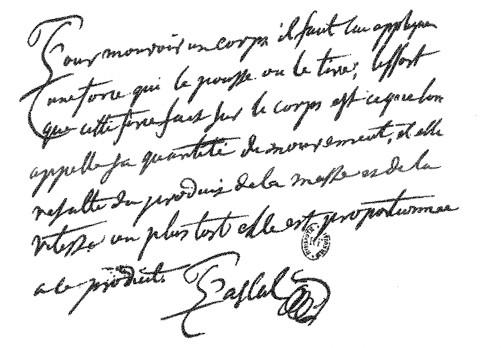 Pour mouvoir un corps il faut luy appliquer
une force qui le pousse ou le tire; leffort
que cette force fait sur le corps est ce que lon
appelle sa quantité de mouvement, et elle
resulte du produit de la masse et de la
vitesse ou plustost elle est proportionnee
a ce produit.
Pascal